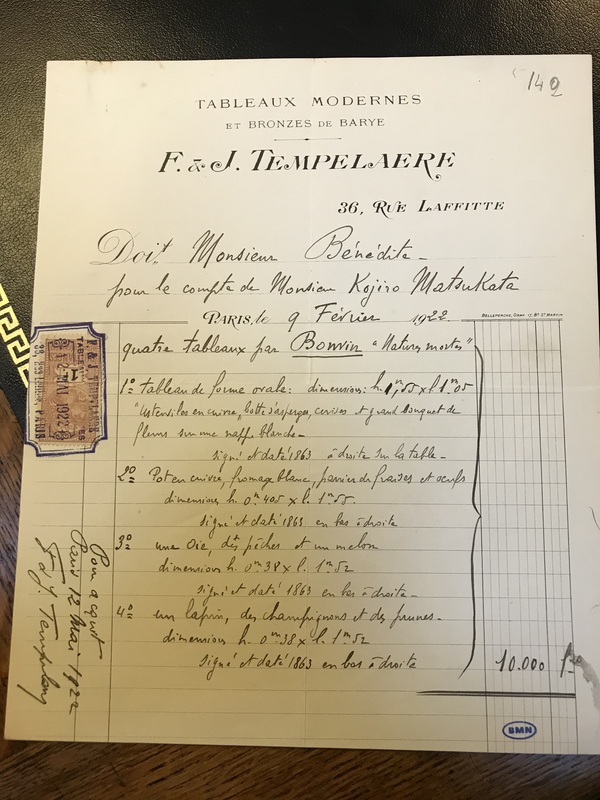 142
TABLEAUX MODERNES
ET BRONZES DE BARYE
F. & J. TEMPELAERE
36, RUE LAFFITTE
Doit Monsieur Bénédite
pour le compte de Monsieur Kojiro Matsukata
PARIS, le 9 Février 1922
quatre tableaux par Bonvin "Natures mortes"
1° tableau de forme ovale: dimensions: h. 1m,55 x l 1m05
"Ustensiles en cuivre, botte d'asperges, cerises et grand bouquet de
fleurs sur une nappe blanche -
signé et daté 1863 à droite sur la table -
2° Pot en cuivre, fromage blanc, panier de fraises et oeufs
dimensions h. 0m405 x l. 1m55
signé et daté 1863 en bas à droite
3° une Oie, des pêches et un melon
dimensions h. 0m38 x l. 1m52
signé et daté 1863 en bas à droite -
4° un lapin, des champignons et des prunes -
dimensions h. 0m38 x l. 1m52
signé et daté 1863 en bas à droite
10.000
Pour acquit
Paris 12 Mai 1922
F & J. Tempelaere
F. & J. TEMPELAERE
MAI 1922
PARIS
BMN